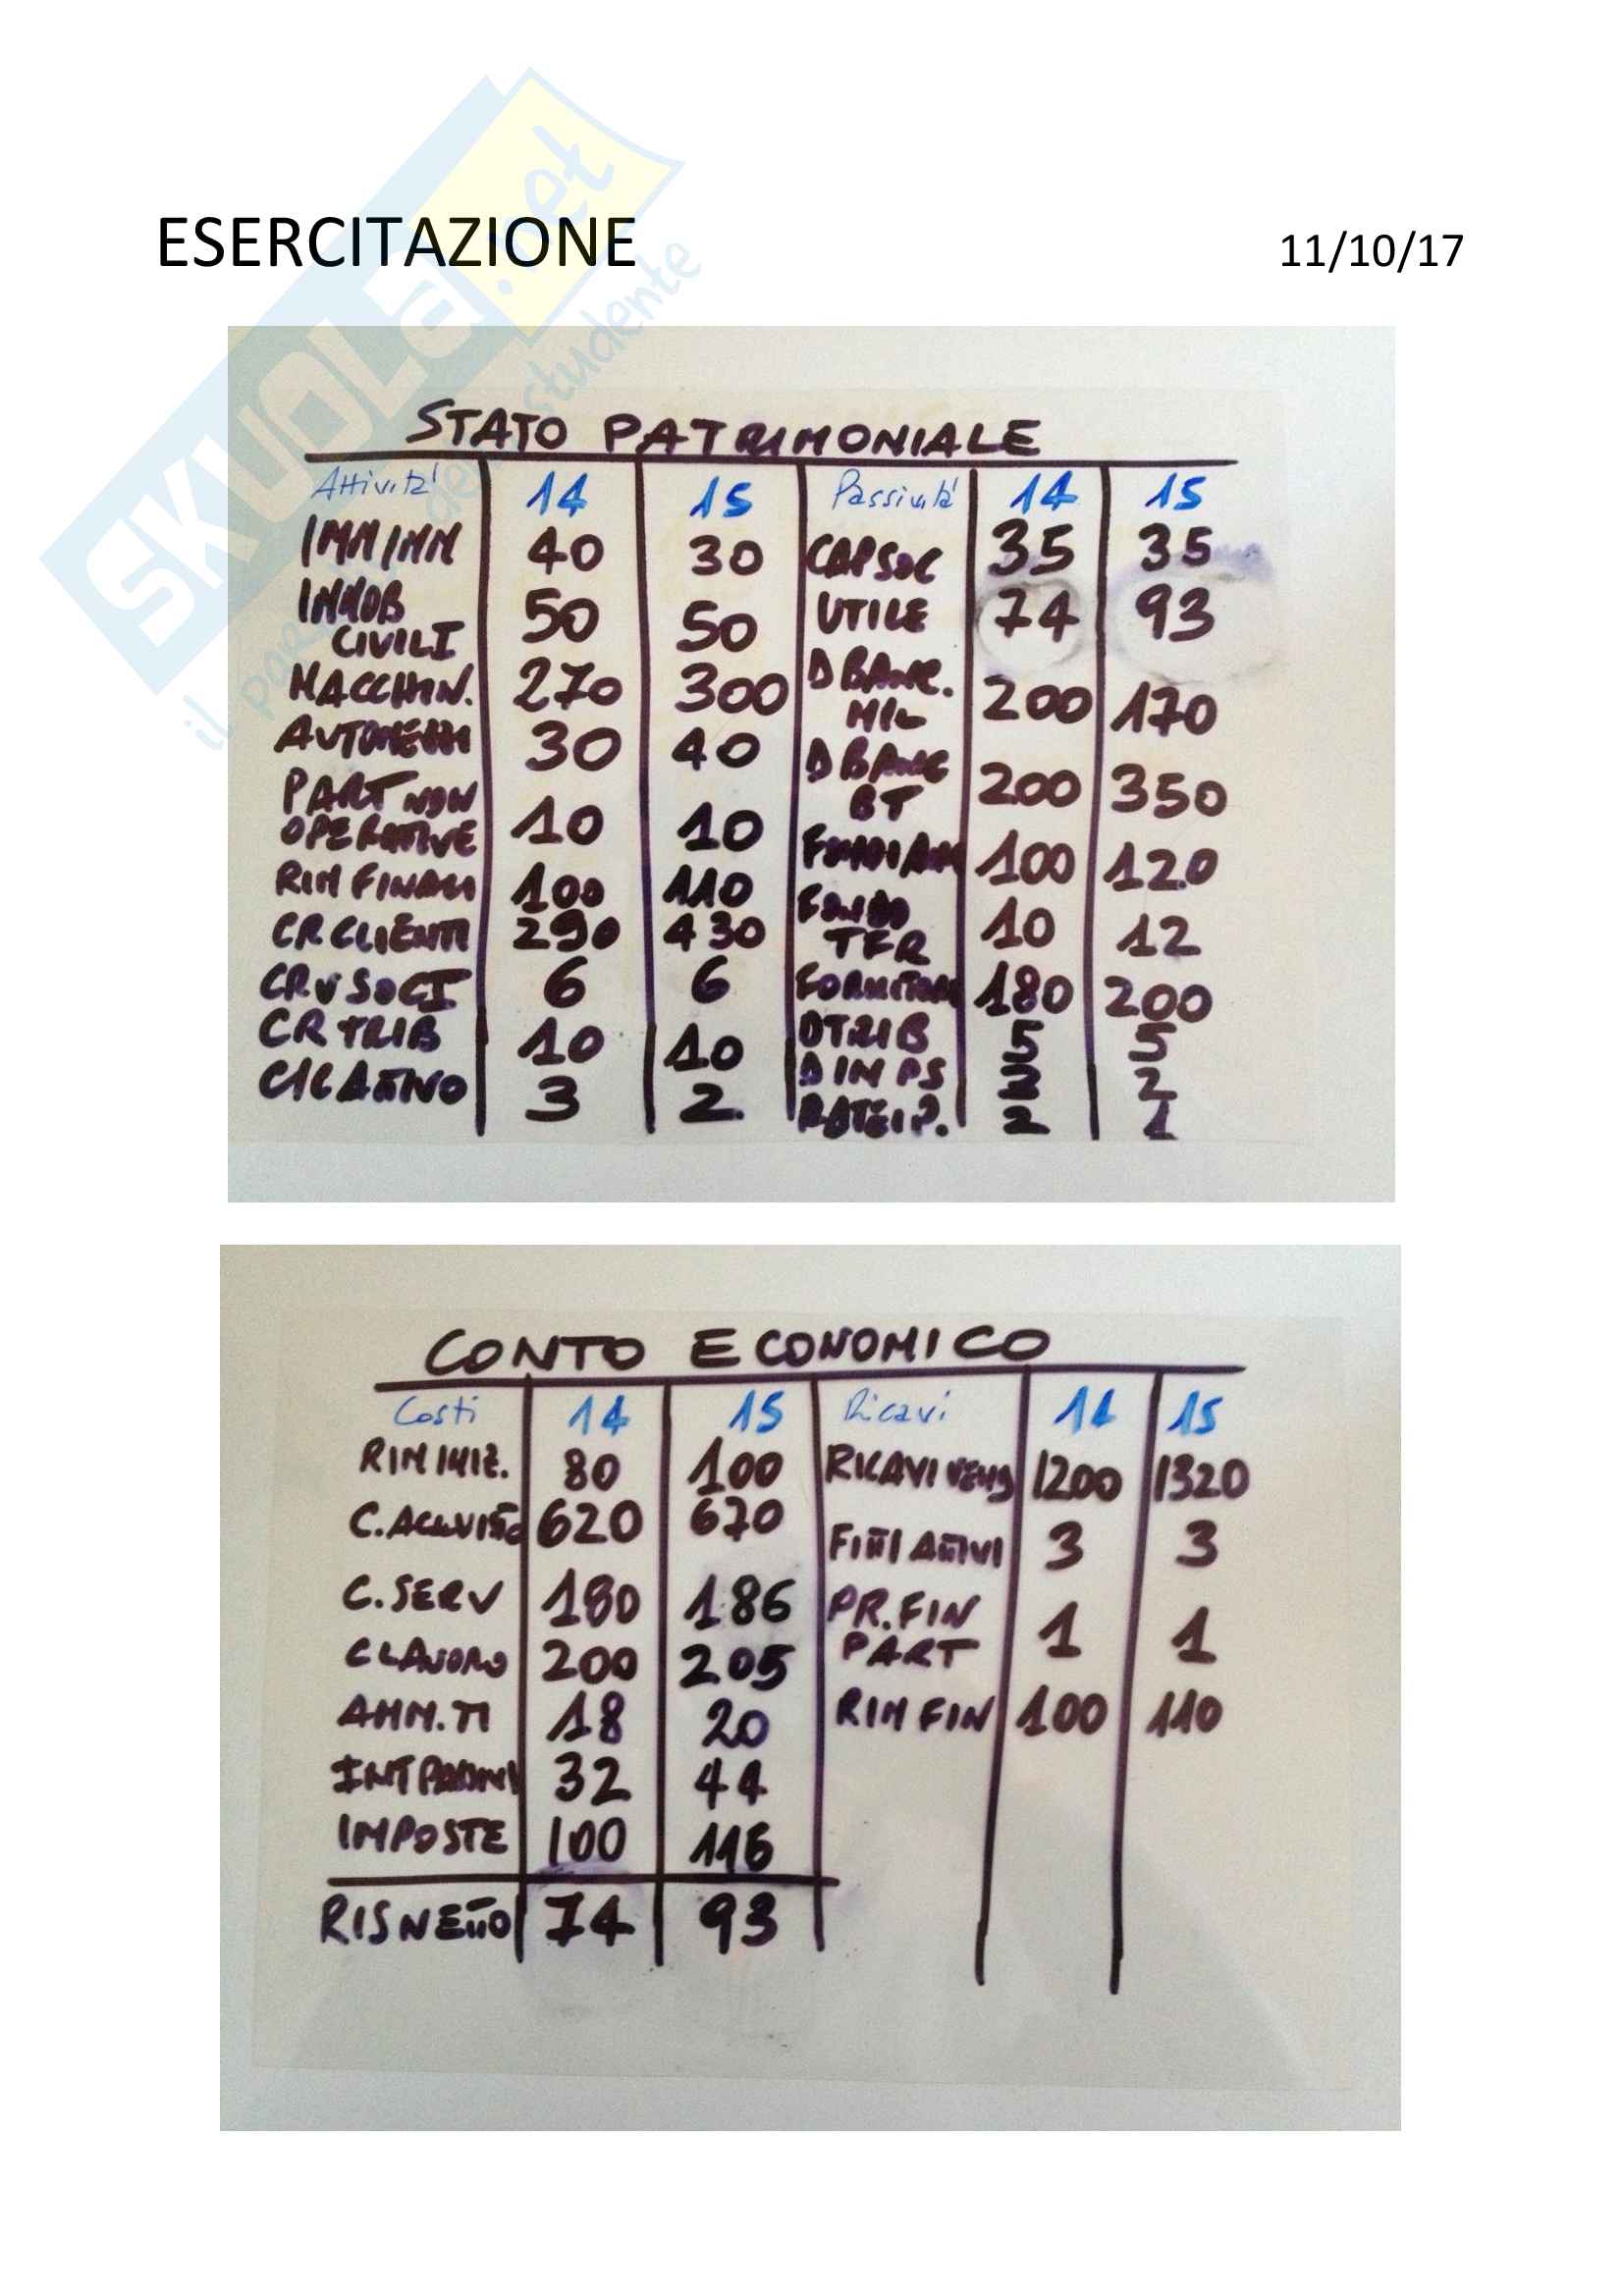 SKUOLA.net
il portale dello studente
ESERCITAZIONE 11/10/17
STATO PATRIMONIALE
Attività 14 15 Passività 14 15
IMM IMM 40 30 CAP SOC 35 35
IMMOB CIVILI 50 50 UTILE 74 93
MACCHIN. 270 300 D BANC. M/L 200 170
AUTOMEZZI 30 40 D BANC BT 200 350
PART NON OPERATIVE 10 10 FONDI AM 100 120
RIM FINALI 100 110 FONDO TFR 10 12
CR CLIENTI 290 430 FORNITORI 180 200
CR V SOCI 6 6 D TRIB 5 5
CR TRIB 10 10 D INPS 2 2
3 2 RATEI P. 2 1
CONTO ECONOMICO
Costi 14 15 Ricavi 14 15
RIM INIZ. 80 100 RICAVI VEND 1200 1320
C. ACQUISTO 620 670 FITTI ATTIVI 3 3
C. SERV 180 186 PR. FIN PART 1 1
C LAVORO 200 205 RIM FIN 100 110
AMM.TI 18 20
INT PASSIVI 32 44
IMPOSTE 100 116
RIS NETTO 74 93